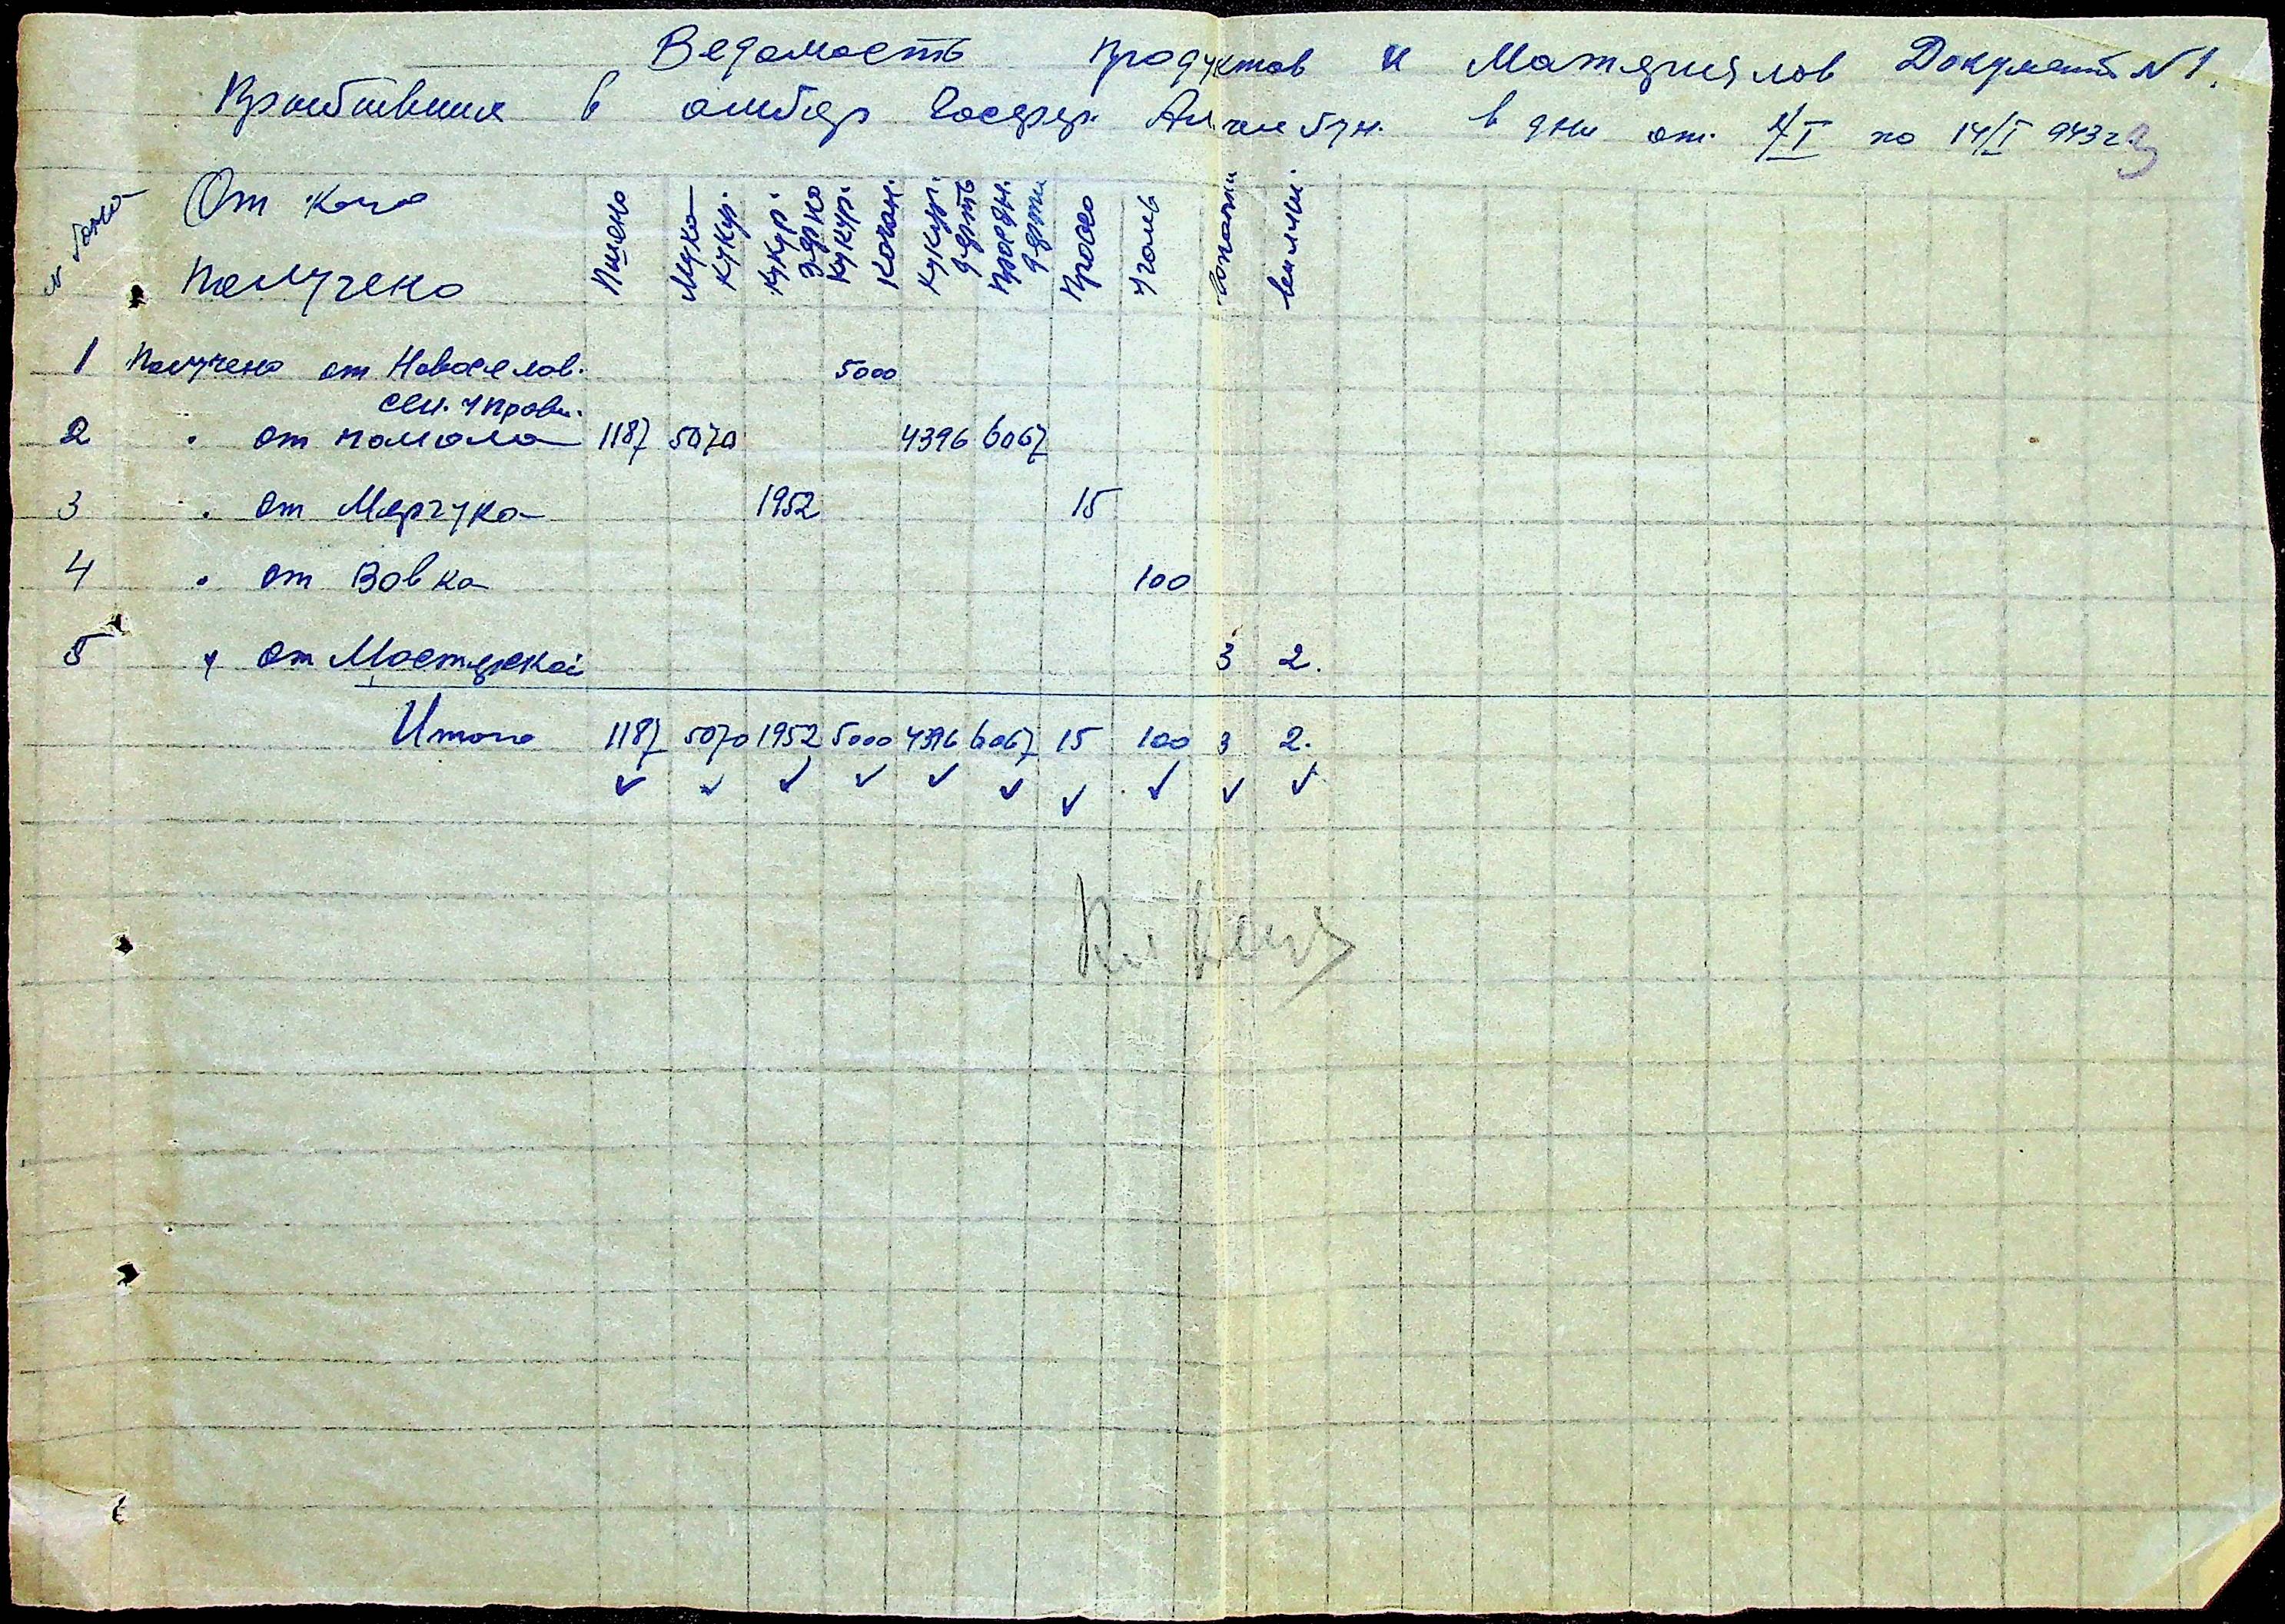 Ведомость продуктов и Материялов Документ N 1.
Прибывших в амбар Госфер. в дни от 4/I по 14/I 943 г.
От кого
Получено
Пшено
Мука кукур.
Кукур. зерно
Кукур. Кочан.
Кукур. дерть
Просян. дерти
Просо
Уголь
Лопатки
вил
1 Получено от Новоселов. 5000
сел. управл.
2 " от помола 1187 5070 4396 6067
3 " от Марчука 1952 15
4 " от Вовка 100
5 " от Мастерской 3 2.
Итого 1187 5070 1952 5000 4396 6067 15 100 3 2.